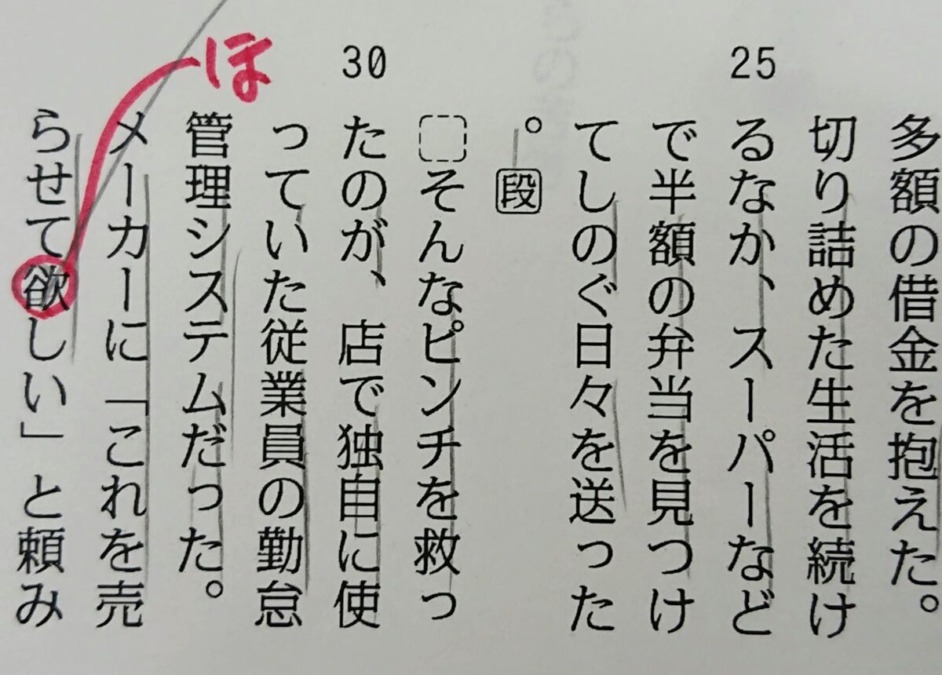 多額の借金を抱えた。
切り詰めた生活を続け
25
るなか、スーパーなど
で半額の弁当を見つけ
てしのぐ日々を送った
。段
そんなピンチを救っ
30
たのが、店で独自に使
っていた従業員の勤怠
管理システムだった。
メーカーに「これを売
ほ
らせて欲しい」と頼み